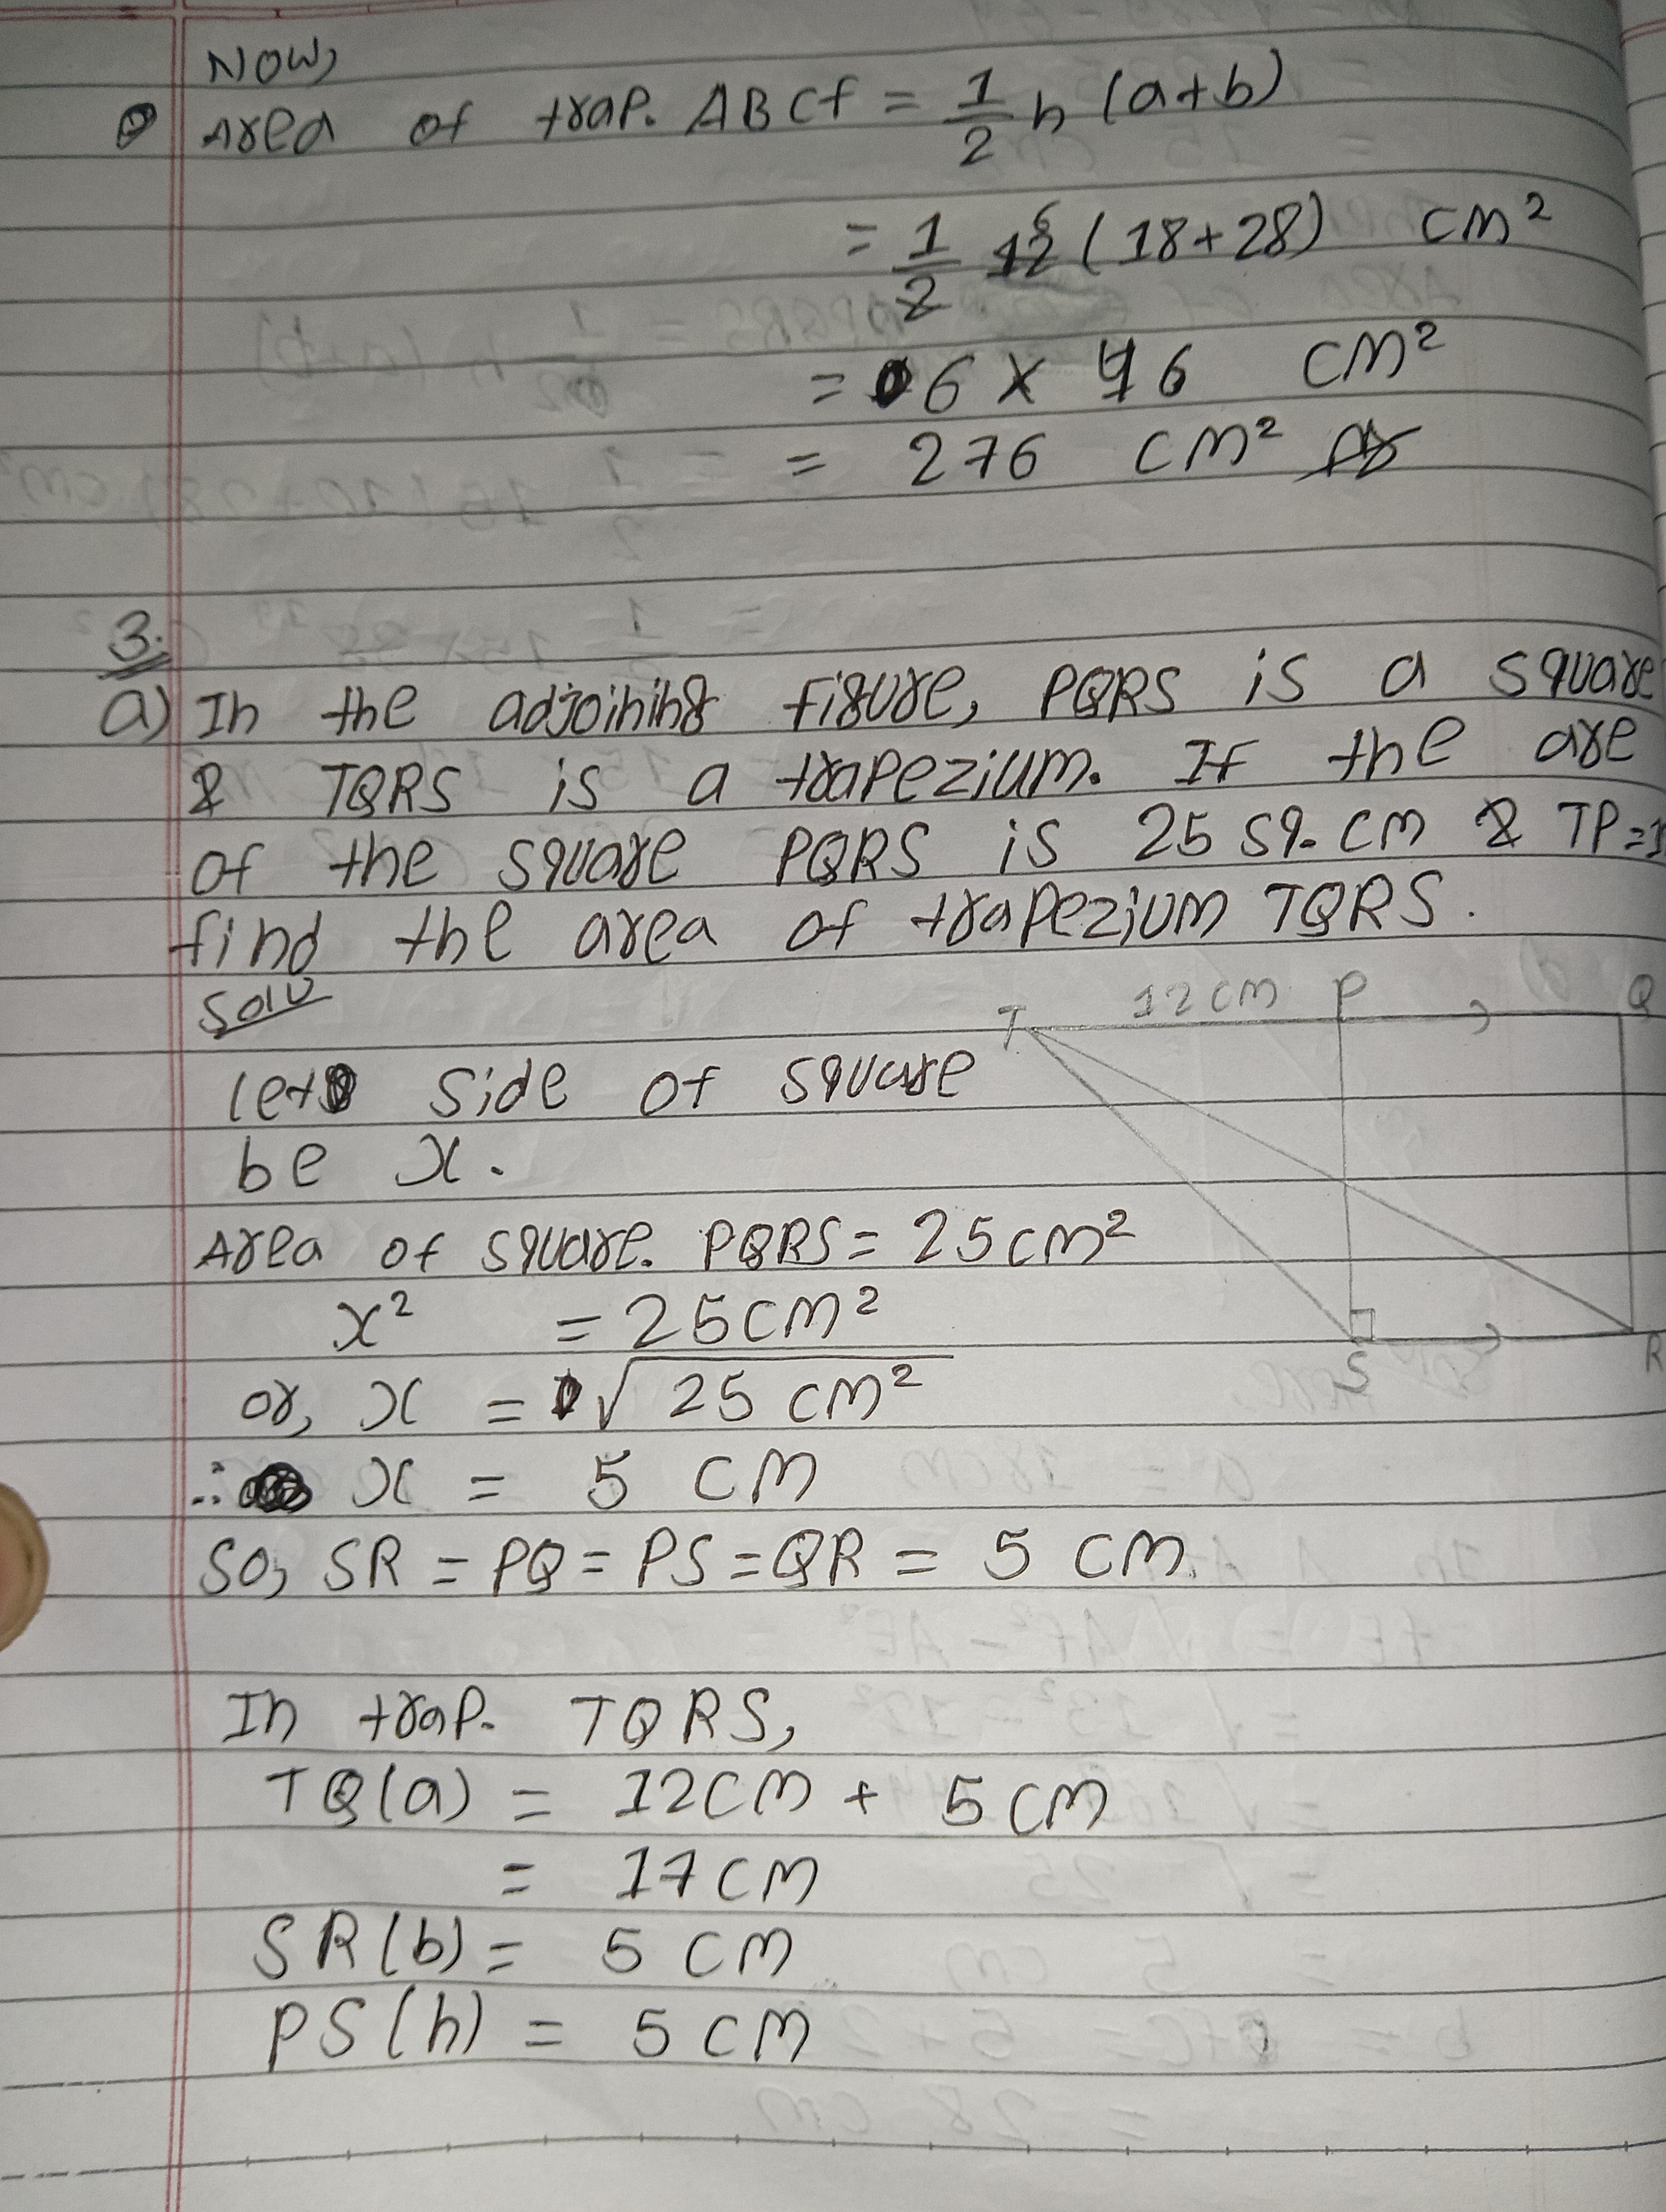 Now,
Area of trap. ABCf = 1/2 h (a+b)
= 1/2 12 6 (18+28) cm²
= 6 x 46 cm²
= 276 cm²
3.
a) In the adjoining figure, PQRS is a square
& TQRS is a trapezium. If the are
of the square PQRS is 25 sq. cm & TP=1
find the area of trapezium TQRS.
Soln
T 12cm P Q
let side of square
be x.
Area of square. PQRS = 25cm²
x² = 25cm²
S R
or, x = √25 cm²
∴ x = 5 cm
So, SR = PQ = PS = QR = 5 cm
In trap. TQRS,
TQ(a) = 12cm + 5cm
= 17cm
SR(b) = 5 cm
PS(h) = 5 cm